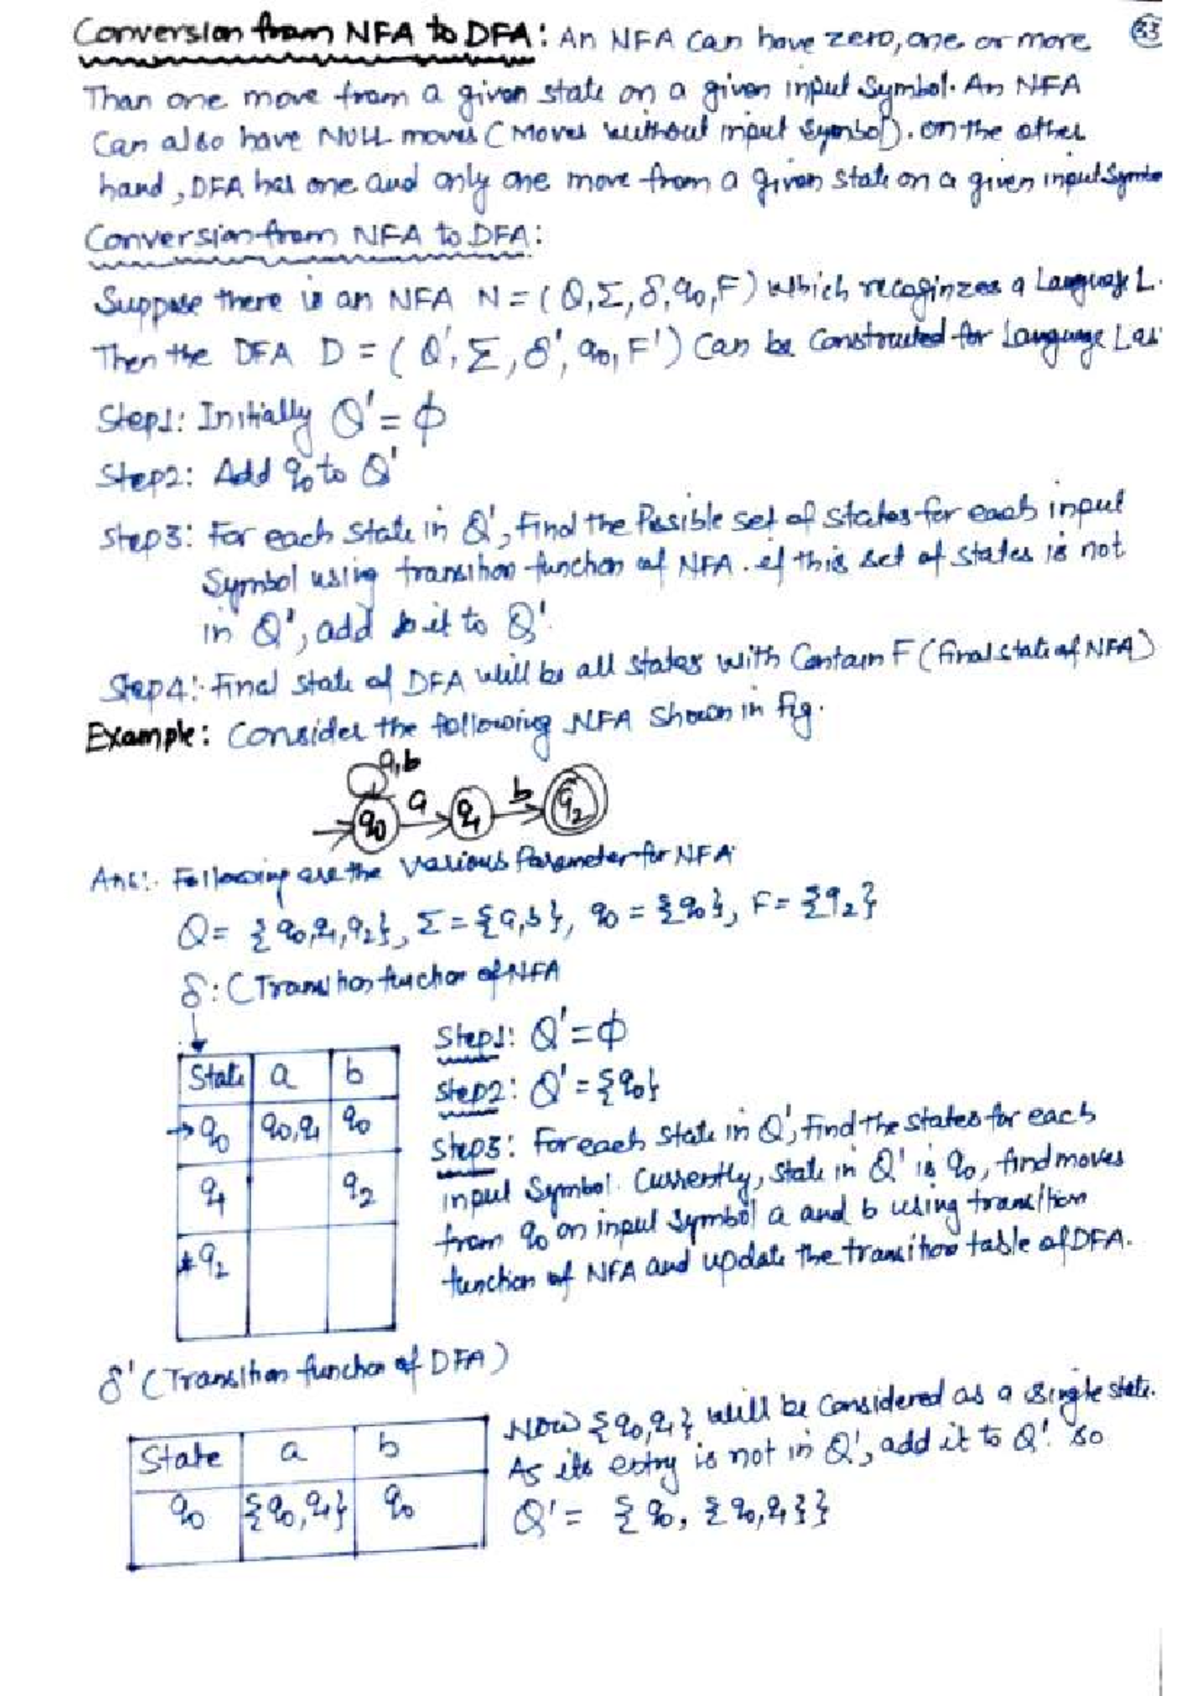 Conversion from NFA to DFA: An NFA can have zero, one or more 33
Than one move from a given state on a given input Symbol. An NFA
Can also have NULL moves (Moves without input symbol). on the other
hand, DFA has one and only one move from a given state on a given input Symbo
Conversion from NFA to DFA:
Suppose there is an NFA N = (Q, Σ, δ, q0, F) which recoginzes a Language L.
Then the DFA D = (Q', Σ, δ', q0, F') Can be Constructed for Language L as
Step1: Initially Q' = ϕ
Step2: Add q0 to Q'
Step3: For each state in Q', Find the Possible set of states for each input
Symbol using transition function of NFA. if this set of states is not
in Q', add it to Q'.
Step4: Final state of DFA will be all states with Contain F (final state of NFA)
Example: Consider the following NFA shown in fig.
a,b
q0 a q1 b q2
Ans:. Following are the various Parameter for NFA
Q = {q0,q1,q2}, Σ = {a,b}, q0 = {q0}, F = {q2}
δ: (Transition function of NFA
State a b
→q0 q0,q1 q0
q1 q2
*q2
Step1: Q' = ϕ
Step2: Q' = {q0}
Step3: For each state in Q', Find the states for each
input Symbol. Currently, state in Q' is q0, find moves
from q0 on input symbol a and b using transition
function of NFA and update the transition table of DFA.
δ' (Transition function of DFA)
State a b
q0 {q0,q1} q0
Now {q0,q1} will be Considered as a single state.
As its entry is not in Q', add it to Q'. so
Q' = {q0, {q0,q1}}